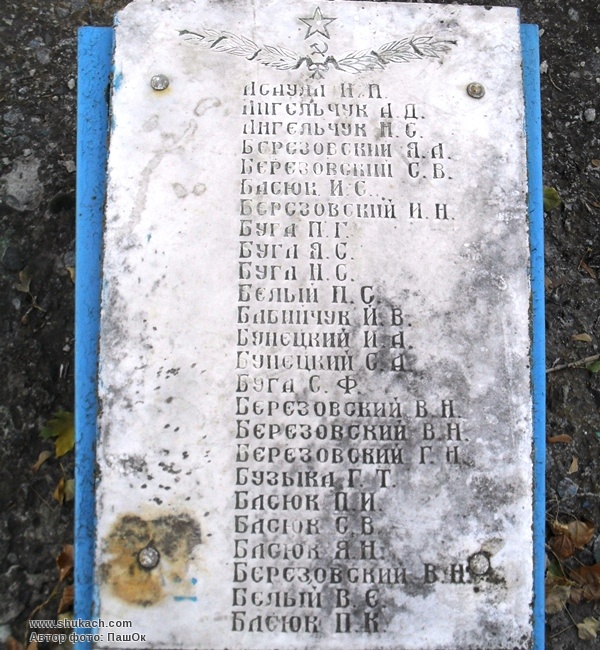 Асаула Н.П.
Ангельчук А.Д.
Ангельчук Н.С.
Березовский Я.А.
Березовский С.В.
Басюк И.С.
Березовский И.Н.
Буга П.Г.
Буга Я.С.
Буга Н.С.
Белый П.С.
Бабийчук И.В.
Бунецкий И.А.
Бунецкий С.А.
Буга С.Ф.
Березовский В.Н.
Березовский В.Н.
Березовский Г.Н.
Бузыка Г.Т.
Басюк П.И.
Басюк С.В.
Басюк Я.Н.
Березовский В.Н.
Белый В.Е.
Басюк П.К.
www.shukach.com
Автор фото: ПашОк